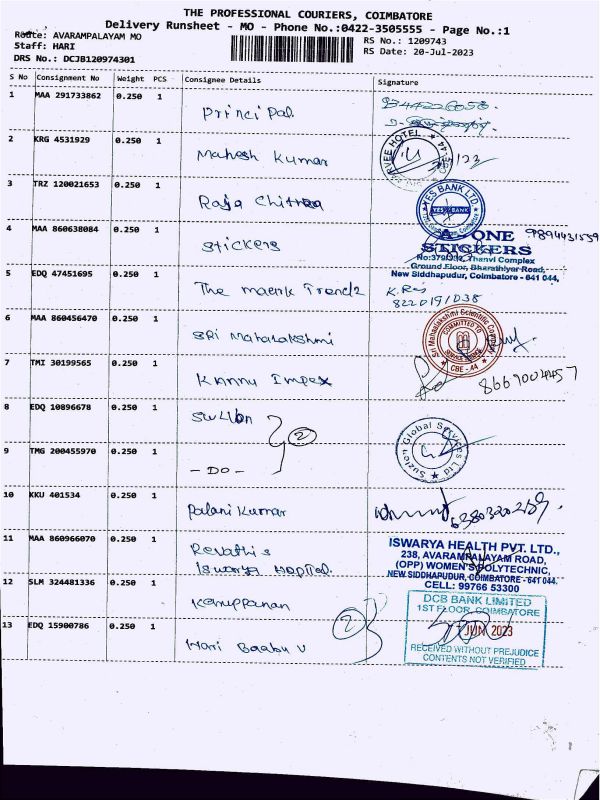 THE PROFESSIONAL COURIERS, COIMBATORE
Delivery Runsheet - MO - Phone No.:0422-3505555 - Page No.:1
Route: AVARAMPALAYAM MO
Staff: HARI
DRS No.: DCJB120974301
RS No.: 1209743
RS Date: 20-Jul-2023
S No Consignment No Weight PCS Consignee Details Signature
1 MAA 291733862 0.250 1 Principal
2 KRG 4531929 0.250 1 Mahesh Kumar
HOTEL
3 TRZ 120021653 0.250 1 Raja Chitra
YES BANK LTD.
YES BANK
4 MAA 860638084 0.250 1 Stickers
A-ONE
STICKERS
Thanvi Complex
Ground Floor, Bharathiyar Road,
New Siddhapudur, Coimbatore - 641 044.
5 EDQ 47451695 0.250 1 The
8220191038
6 MAA 860456470 0.250 1 SRI Mahalakshmi
Sri Mahalakshmi Scientific Company
COMMITTED TO
CBE - 44
7 TMI 30199565 0.250 1 Kannu Impex
8 EDQ 10896678 0.250 1
2
Suzlon Global Services Ltd
9 TMG 200455970 0.250 1 - DO -
10 KKU 401534 0.250 1 Palani Kumar
11 MAA 860966070 0.250 1 Revathi s
Iswarya Hospital.
ISWARYA HEALTH PVT. LTD.,
238, AVARAMPALAYAM ROAD,
(OPP) WOMEN'S POLYTECHNIC,
NEW SIDDHAPUDUR, COIMBATORE - 641 044.
CELL: 99766 53300
12 SLM 324481336 0.250 1 Karuppanan
DCB BANK LIMITED
1ST FLOOR, COIMBATORE
13 EDQ 15900786 0.250 1 Hari Baabu V
2
JUN 2023
RECEIVED WITHOUT PREJUDICE
CONTENTS NOT VERIFIED